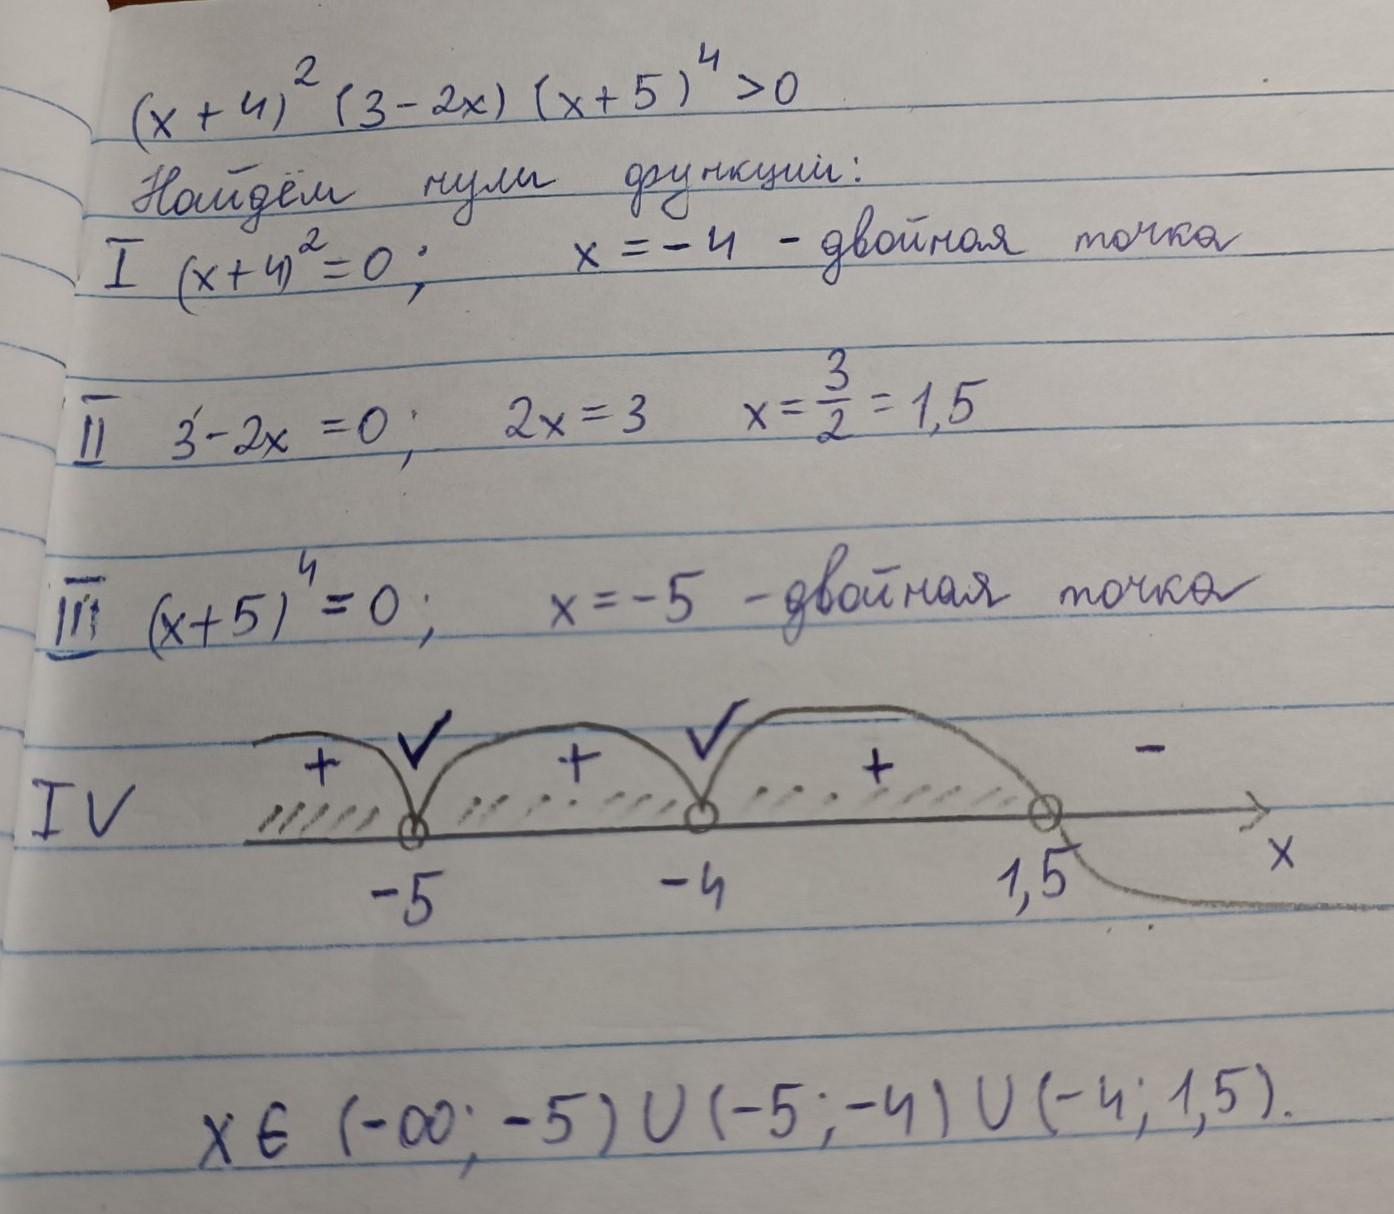 (x+4)² (3-2x) (x+5)⁴ >0
Найдём нули функции:
I (x+4)²=0; x=-4 - двойная точка
II 3-2x=0; 2x=3 x=3/2=1,5
III (x+5)⁴=0; x=-5 - двойная точка
+ + + -
IV
-5 -4 1,5 x
x∈ (-∞; -5) U (-5; -4) U (-4; 1,5).